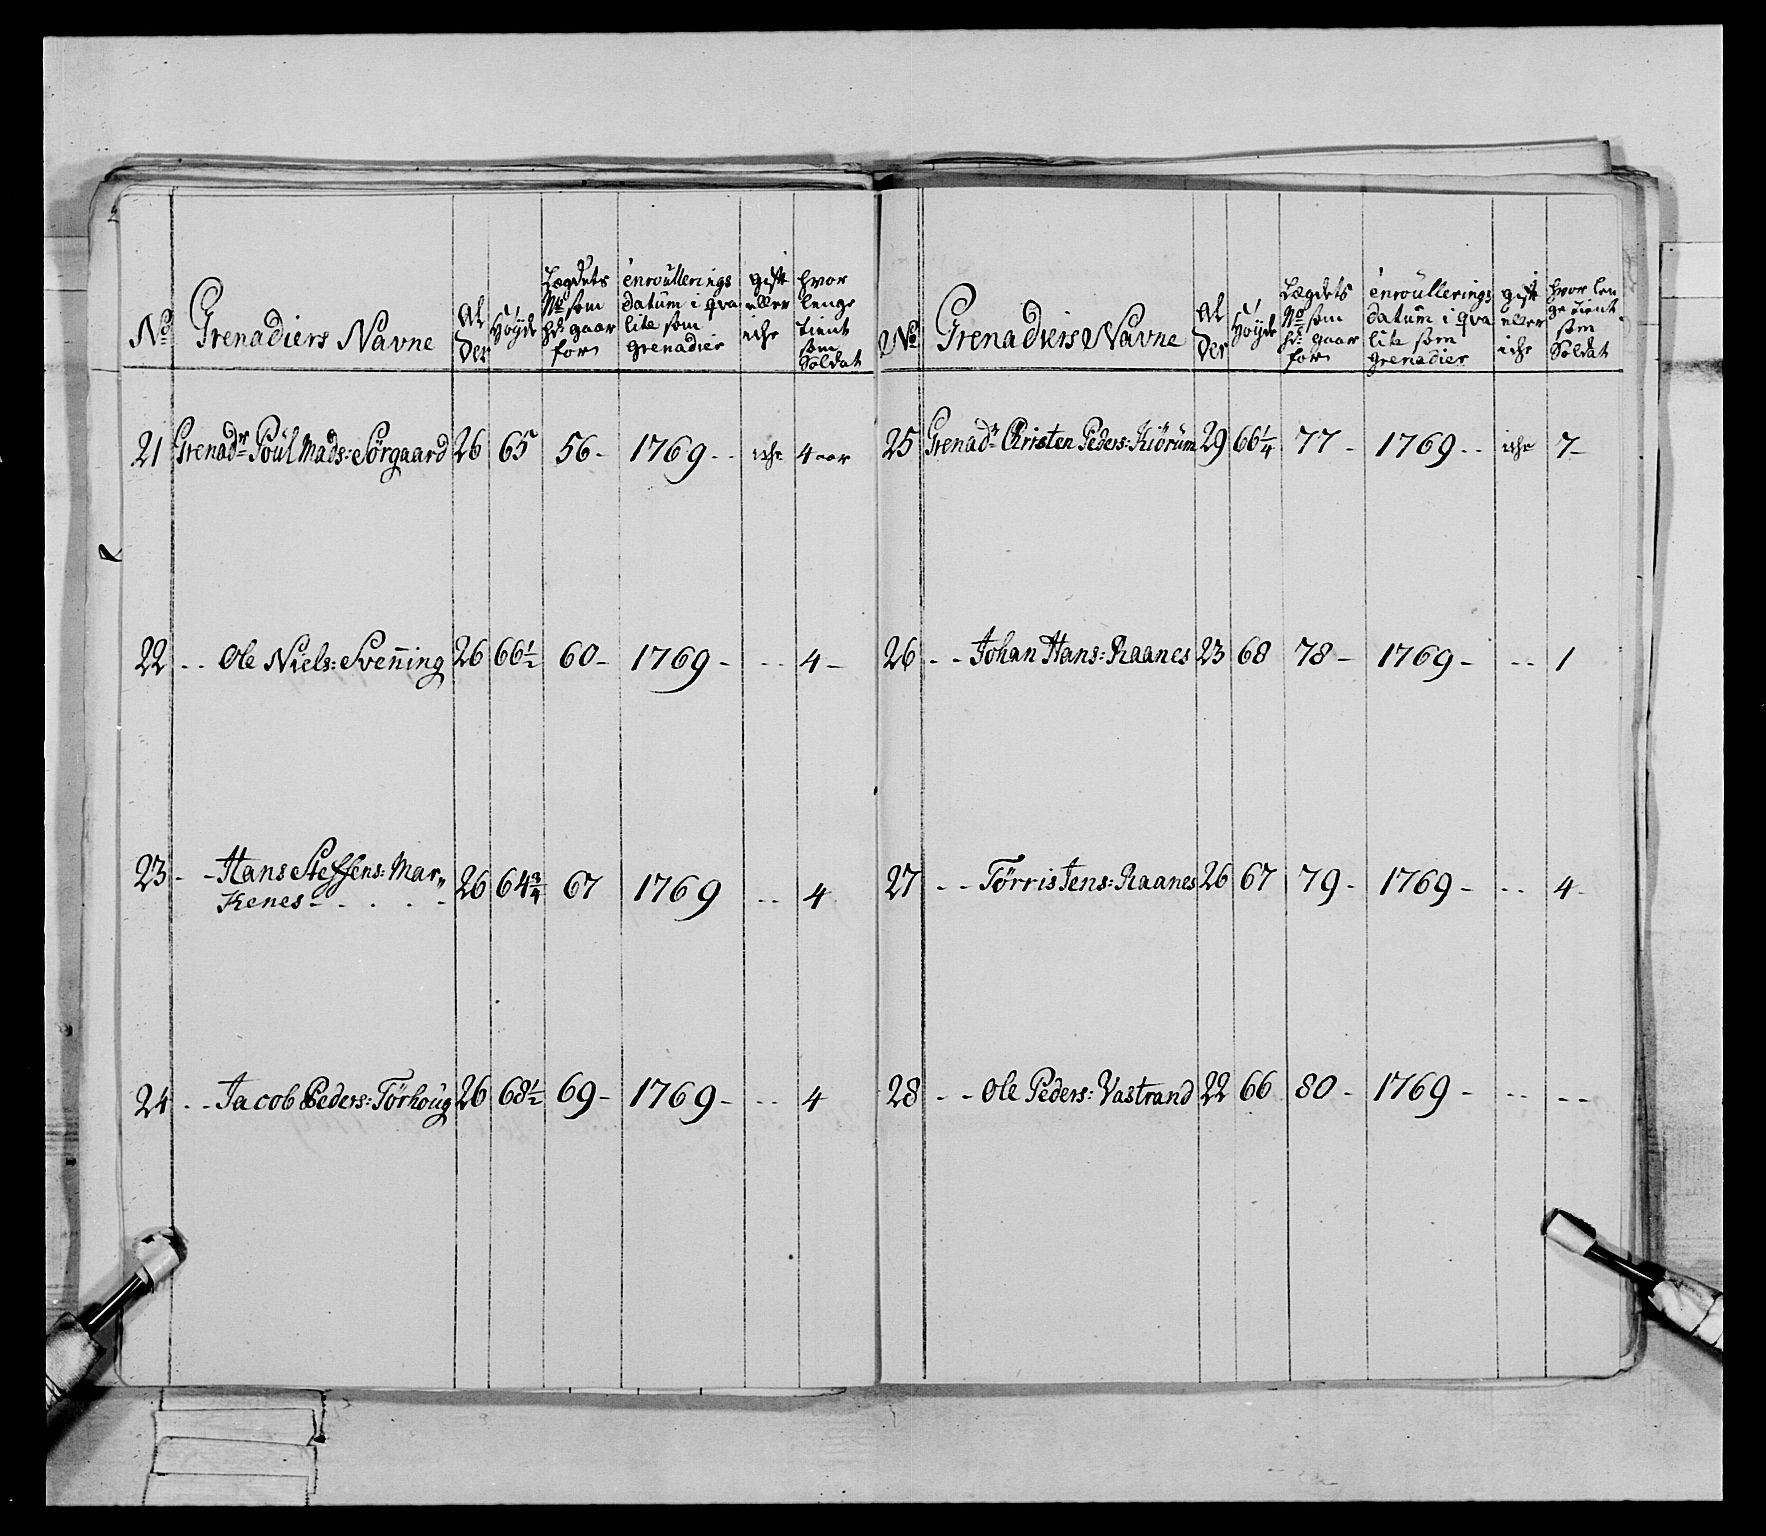 No Grenadiers Navne Al der Höyde Lægdets No som hd: gaar for enroullerings datum i qva lite som grenadier gift eller iche hvor lenge tient som Soldat
21 Grenadr Poul Mads: Sörgaard 26 65 56 - 1769 - - iche 4 aar
22 - - Ole Niels: Svenning 26 66 1/2 60 - 1769 - - - 4 -
23 - - Hans Steffens: Mar„
Kenes - . . . - 26 64 3/4 67 1769 - - 4
24 - - Jacob Peders: Törhoug 26 68 1/2 69 - 1769 - - - 4
No Grenadiers Navne Al der Höyde Lægdets No som hd: gaar for enroullerings datum i qva lite som grenadier gift eller iche hvor len ge tient som Soldat
25 Grenadr Christen Peders: Kiörum 29 66 1/4 77 - 1769 - - iche 7 -
26 - - Johan Hans: Raanes 23 68 78 - 1769 - - - 1
27 - - Törris Jens: Raanes 26 67 79 - 1769 - - - 4 -
28 - - Ole Peders: Vastrand 22 66 80 - 1769 - - - - -